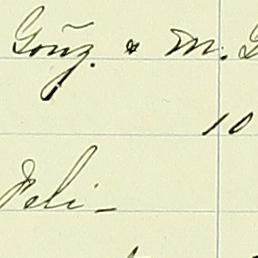 Goñz. & M. G
10
Feli-